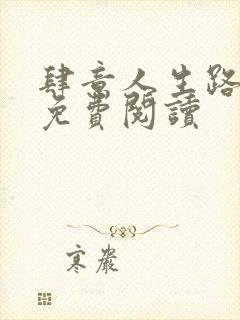 肆意人生路
免費閱讀
寒巖